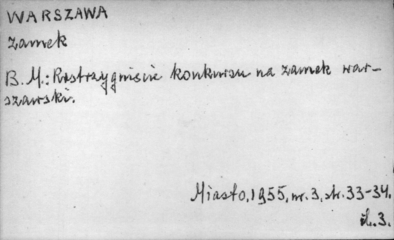 WARSZAWA
zamek
B. M.: Rostrzygnięcie konkursu na zamek war-
szawski.
Miasto, 1955, nr. 3, str. 33-34.
il. 3.